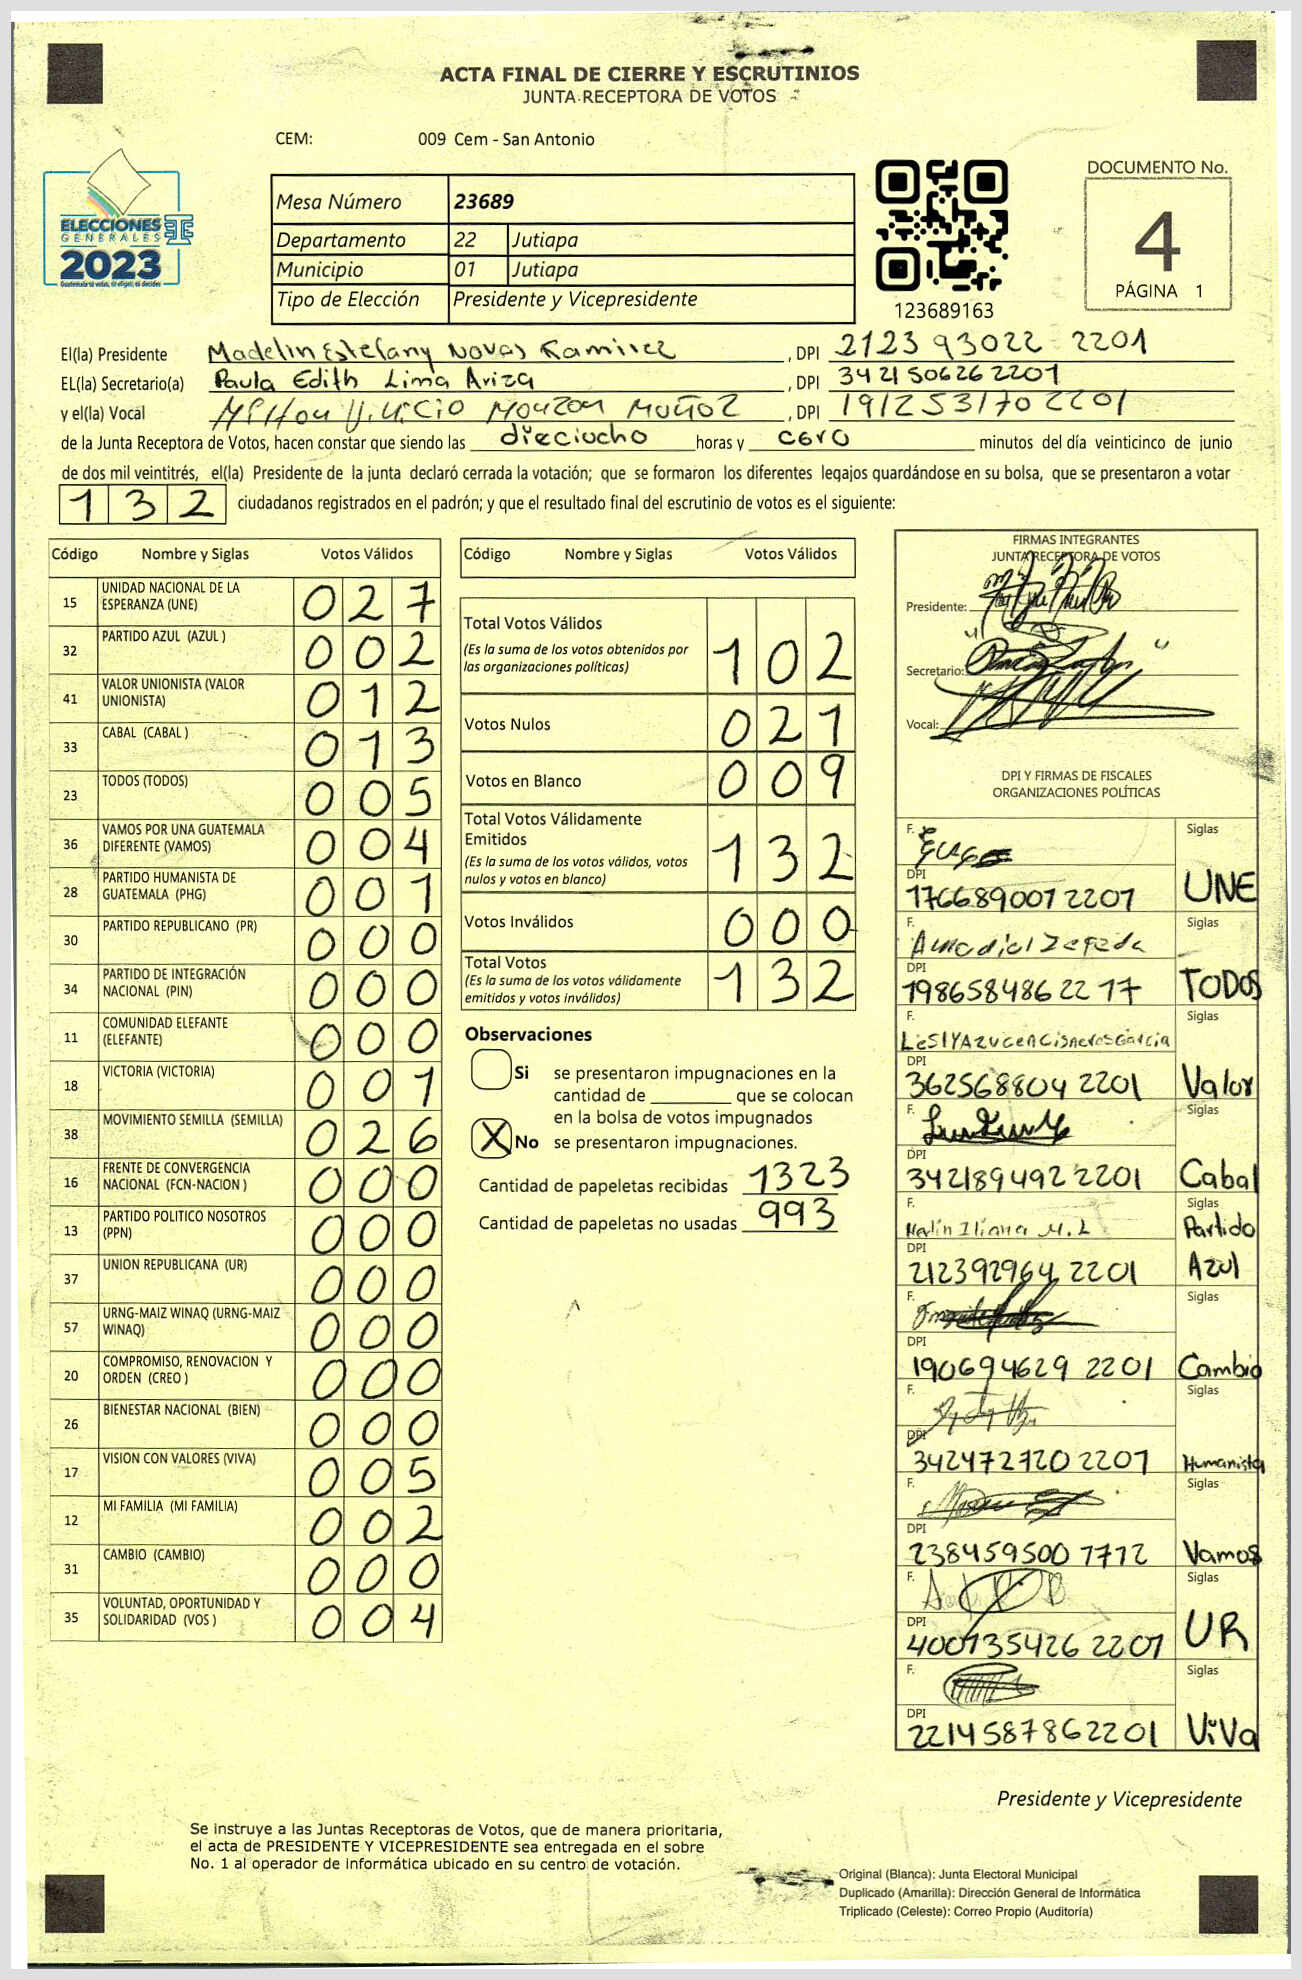 ACTA FINAL DE CIERRE Y ESCRUTINIOS
JUNTA RECEPTORA DE VOTOS
CEM: 009 Cem - San Antonio
ELECCIONES
GENERALES
2023
Guatemala tú votas, tú eliges, tú decides
Mesa Número 23689
Departamento 22 Jutiapa
Municipio 01 Jutiapa
Tipo de Elección Presidente y Vicepresidente
123689163
DOCUMENTO No.
4
PÁGINA 1
El(la) Presidente Madelin Estefany Novas Ramirez , DPI 2123 93022 2201
EL(la) Secretario(a) Paula Edith Lima Ariza , DPI 342150626 2201
y el(la) Vocal Milton Vinicio Monzon Muñoz , DPI 191253170 2201
de la Junta Receptora de Votos, hacen constar que siendo las dieciocho horas y cero minutos del día veinticinco de junio
de dos mil veintitrés, el(la) Presidente de la junta declaró cerrada la votación; que se formaron los diferentes legajos guardándose en su bolsa, que se presentaron a votar
132 ciudadanos registrados en el padrón; y que el resultado final del escrutinio de votos es el siguiente:
Código Nombre y Siglas Votos Válidos
15 UNIDAD NACIONAL DE LA ESPERANZA (UNE) 027
32 PARTIDO AZUL (AZUL ) 002
41 VALOR UNIONISTA (VALOR UNIONISTA) 012
33 CABAL (CABAL ) 013
23 TODOS (TODOS) 005
36 VAMOS POR UNA GUATEMALA DIFERENTE (VAMOS) 004
28 PARTIDO HUMANISTA DE GUATEMALA (PHG) 001
30 PARTIDO REPUBLICANO (PR) 000
34 PARTIDO DE INTEGRACIÓN NACIONAL (PIN) 000
11 COMUNIDAD ELEFANTE (ELEFANTE) 000
18 VICTORIA (VICTORIA) 001
38 MOVIMIENTO SEMILLA (SEMILLA) 026
16 FRENTE DE CONVERGENCIA NACIONAL (FCN-NACION ) 000
13 PARTIDO POLITICO NOSOTROS (PPN) 000
37 UNION REPUBLICANA (UR) 000
57 URNG-MAIZ WINAQ (URNG-MAIZ WINAQ) 000
20 COMPROMISO, RENOVACION Y ORDEN (CREO ) 000
26 BIENESTAR NACIONAL (BIEN) 000
17 VISION CON VALORES (VIVA) 005
12 MI FAMILIA (MI FAMILIA) 002
31 CAMBIO (CAMBIO) 000
35 VOLUNTAD, OPORTUNIDAD Y SOLIDARIDAD (VOS ) 004
Código Nombre y Siglas Votos Válidos
Total Votos Válidos 102
(Es la suma de los votos obtenidos por
las organizaciones políticas)
Votos Nulos 021
Votos en Blanco 009
Total Votos Válidamente
Emitidos 132
(Es la suma de los votos válidos, votos
nulos y votos en blanco)
Votos Inválidos 000
Total Votos 132
(Es la suma de los votos válidamente
emitidos y votos inválidos)
Observaciones
Si se presentaron impugnaciones en la
cantidad de ________ que se colocan
en la bolsa de votos impugnados
X No se presentaron impugnaciones.
Cantidad de papeletas recibidas 1323
Cantidad de papeletas no usadas 993
FIRMAS INTEGRANTES
JUNTA RECEPTORA DE VOTOS
Presidente:
Secretario:
Vocal:
DPI Y FIRMAS DE FISCALES
ORGANIZACIONES POLÍTICAS
F. Siglas
DPI
1766890072201 UNE
F. Siglas
DPI
198658486 22 17 TODOS
F. Lesly Azucen Cisneros Garcia Siglas
DPI
362568804 2201 Valor
F. Siglas
DPI
342189492 2201 Cabal
F. Siglas
DPI
212392964 2201 Partido Azul
F. Siglas
DPI
190694629 2201 Cambio
F. Siglas
DPI
342472720 2201 Humanista
F. Siglas
DPI
238459500 7712 Vamos
F. Siglas
DPI
400735426 2201 UR
F. Siglas
DPI
2214587862201 ViVa
Presidente y Vicepresidente
Se instruye a las Juntas Receptoras de Votos, que de manera prioritaria,
el acta de PRESIDENTE Y VICEPRESIDENTE sea entregada en el sobre
No. 1 al operador de informática ubicado en su centro de votación.
Original (Blanca): Junta Electoral Municipal
Duplicado (Amarilla): Dirección General de Informática
Triplicado (Celeste): Correo Propio (Auditoría)